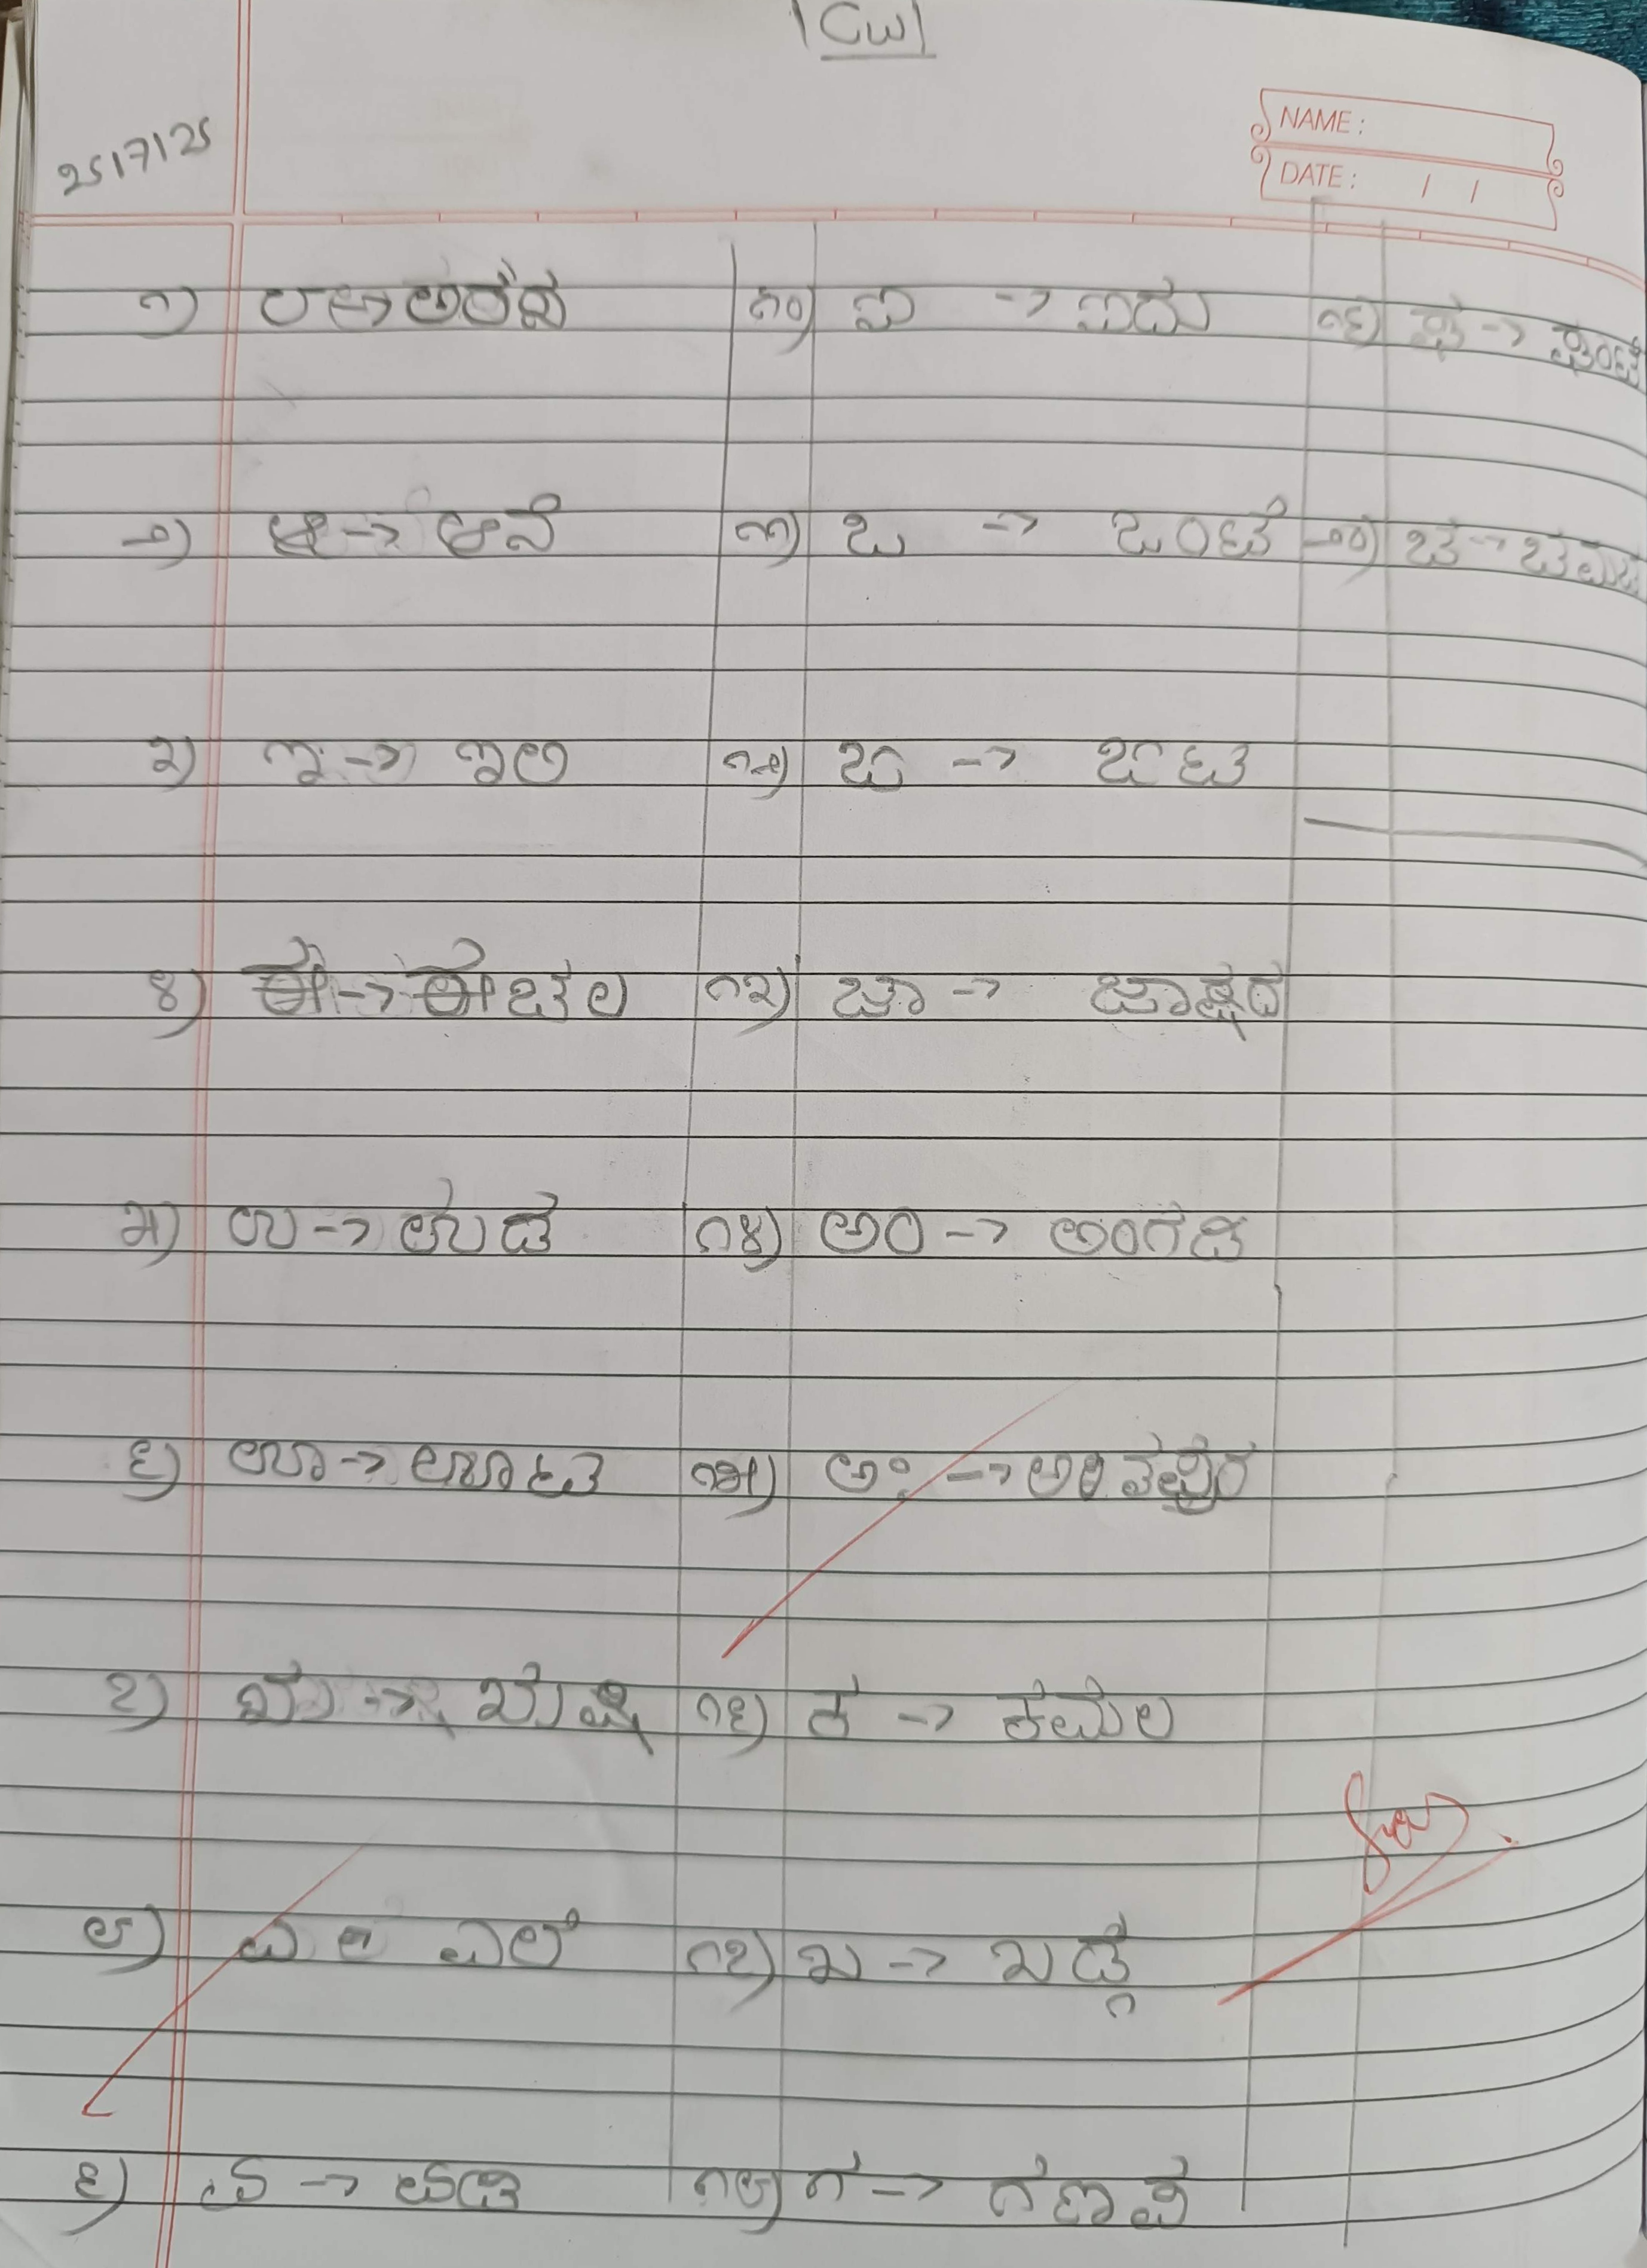 CW
NAME:
25/7/25
DATE: / /
೧) ಅ → ಅರಸ
೨) ಆ → ಆನೆ
೩) ಇ → ಇಲಿ
೪) ಈ → ಈಚಲ
೫) ಉ → ಉಡ
೬) ಊ → ಊಟ
೭) ಋ → ಋಷಿ
೮) ಎ ಎಲೆ
೯) ಏ → ಏಡಿ
೧೦) ಐ → ಐದು
೧೧) ಒ → ಒಂಟೆ
೧೨) ಓ → ಓಟ
೧೩) ಔ → ಔಷಧ
೧೪) ಅಂ → ಅಂಗಡಿ
೧೫) ಅಃ →
೧೬) ಕ → ಕಮಲ
೧೭) ಖ → ಖಡ್ಗ
೧೮) ಗ → ಗಣಪ
೧೯) ಘ → ಘಂಟೆ
೨೦) ಚ → ಚಮಚ